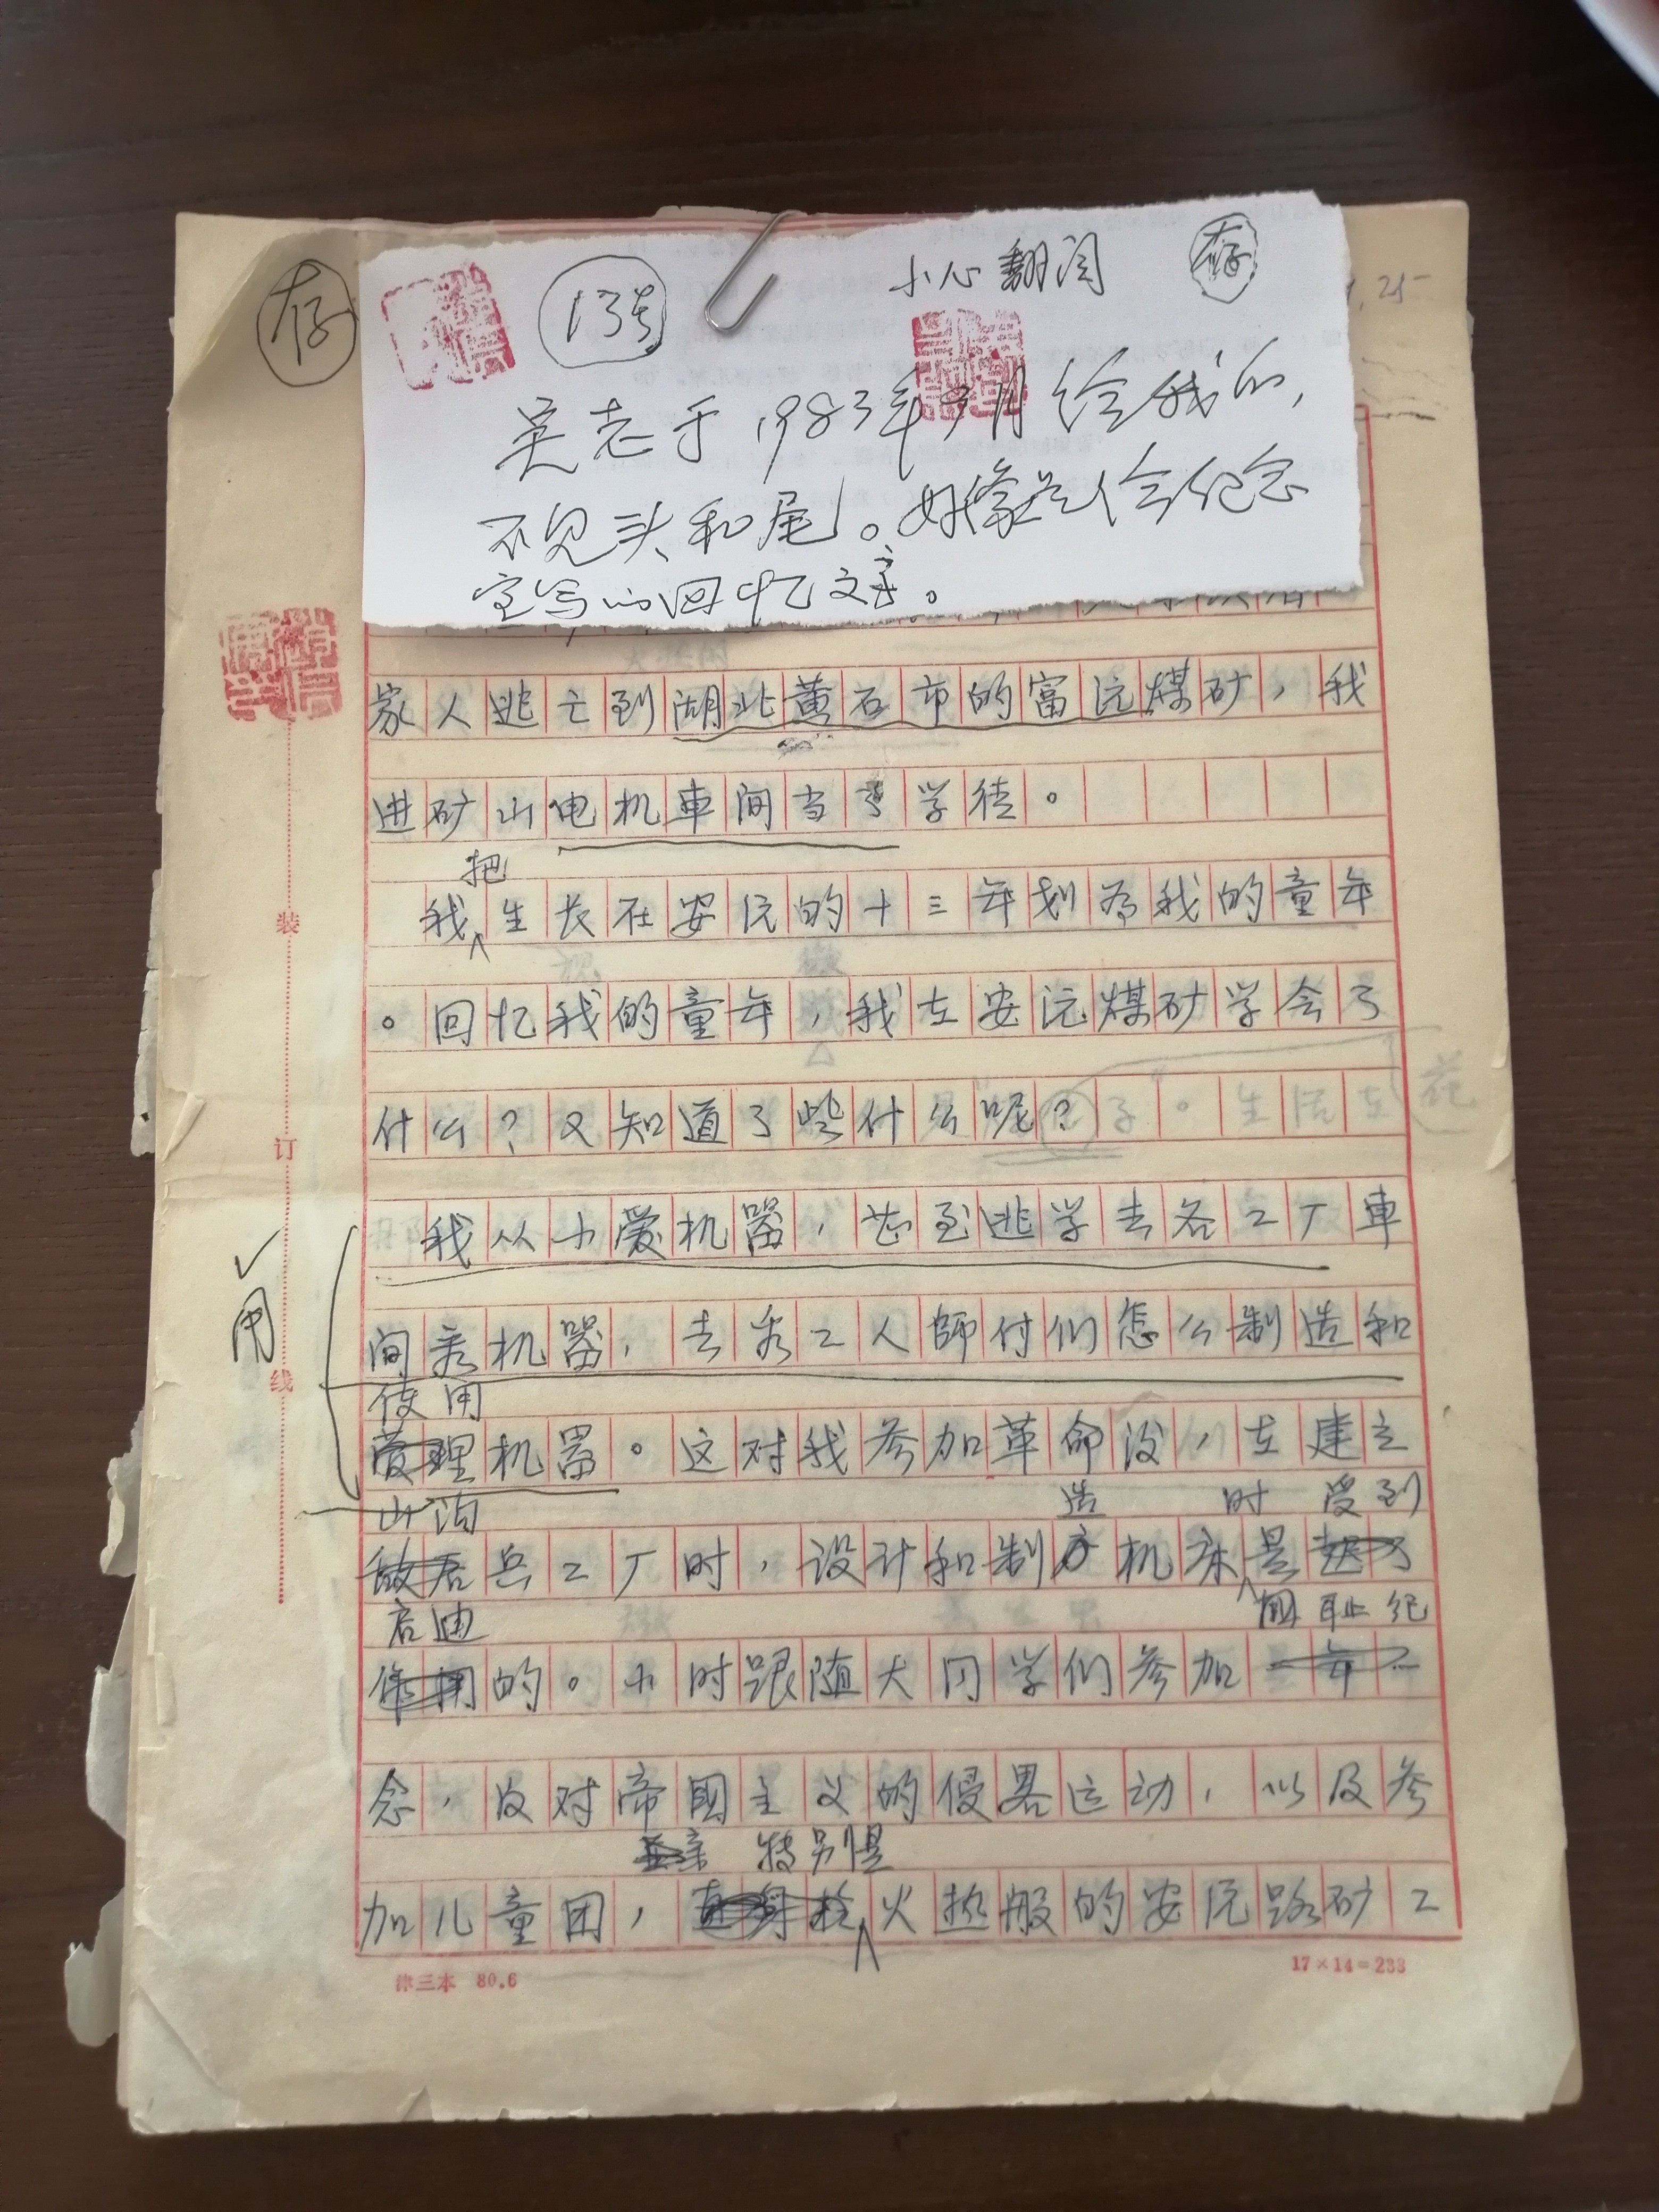 存
13号
小心翻阅
存
吴老于1983年9月给我的,
不见头和尾。好像是人会纪念
室写的回忆文章。
家人逃亡到湖北黄石市的富沅煤矿,我
进矿山电机車间当了学徒。
把
我生长在安沅的十三年划为我的童年
。回忆我的童年,我在安沅煤矿学会了
什么?又知道了些什么呢?
我从小爱机器,甚至逃学去各工厂車
间看机器,去看工人師付们怎么制造和
使用
管理机器。这对我参加革命后,在建立
山沟
造 时 受到
敌后兵工厂时,设计和制方机床是起了
启迪
国耻纪
作用的。小时跟随大同学们参加
念,反对帝国主义的侵畧运动,以及参
特别是
加儿童团,火热般的安沅路矿工
用
装
订
线
津三本 80.6
17×14=238